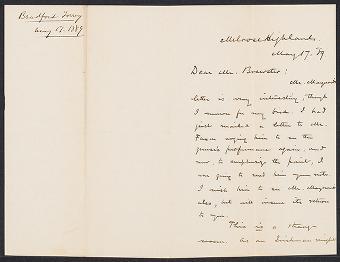 Bradford Torrey
May 17. 1889
Melrose Highlands.
May 17. '89
Dear Mr. Brewster:
Mr. Maynard's
letter is very interesting, though
I for my bird. I had
just mailed a letter to Mr.
Faxon urging him to see the
performance again, and
now, to emphasize the point, I
am going to send him again note.
I wish him to see Mr. Maynard's
also, but will insure its return
to you.
This is a strange
season. As an Irishman might